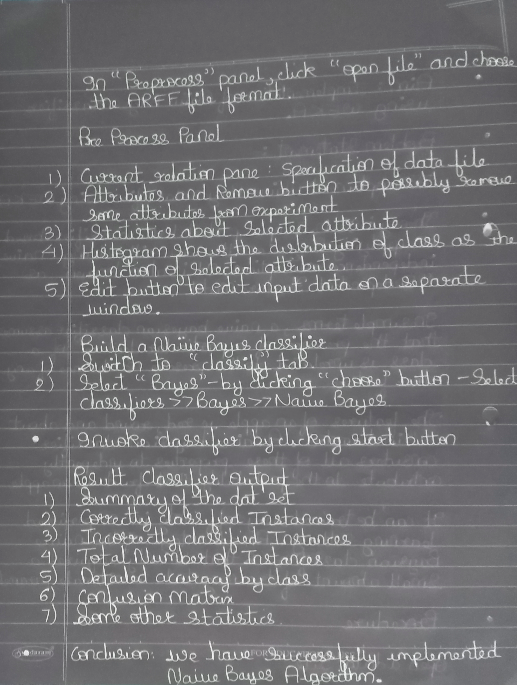 In "Preprocess" panel, click "open file" and choose
the ARFF file format.
Pre Process Panel
1) Current relation pane : Specification of data file
2) Attributes and Remove button to possibly remove
some attributes from experiment
3) Statistics about selected attribute
4) Histogram shows the distribution of class as the
function of selected attribute.
5) Edit button to edit input data on a separate
window.
Build a Naive Bayes classifier
1) Switch to "classify" tab.
2) Select "Bayes" - by clicking "choose" button - Select
classifiers >> Bayes >> Naive Bayes
• Invoke classifier by clicking start button
Result Classifier Output
1) Summary of the dat set
2) Correctly classified Instances
3) Incorrectly classified Instances
4) Total Number of Instances
5) Detailed accuracy by class
6) Confusion matrix
7) Some other statistics.
Conclusion: we have successfully implemented
Naive Bayes Algorithm.